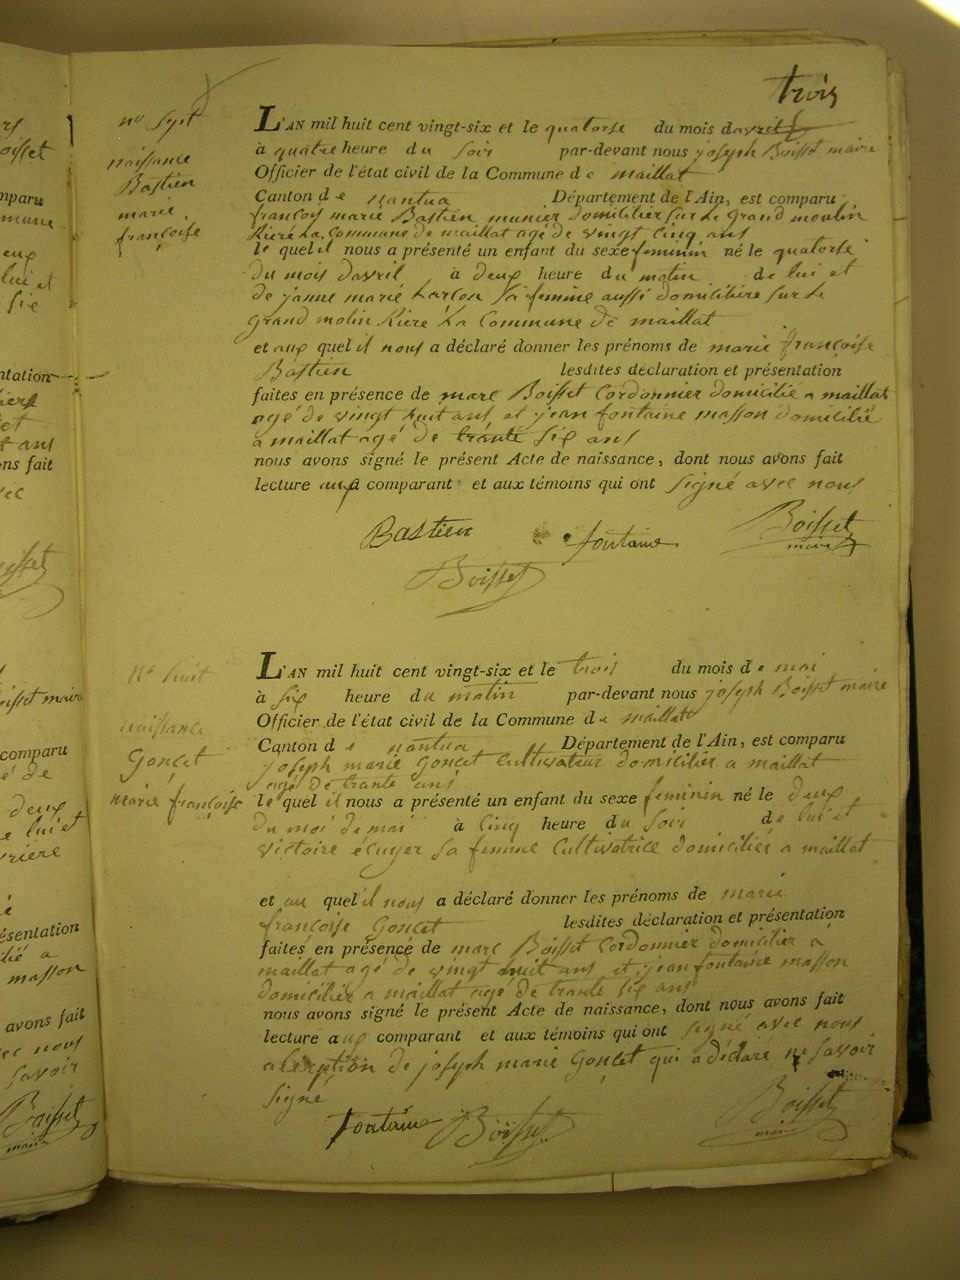 trois
no sept
naissance
Bastien
marie
françoise
L'AN mil huit cent vingt-six et le quatorse du mois davril
à quatre heure du soir par-devant nous joseph Boisset maire
Officier de l'état civil de la Commune de maillat
Canton de nantua Département de l'Ain, est comparu
françois marie Bastien munier domicilier sur le grand moulin
Riere La Commune de maillat agé de vingt cinq ans
le quel il nous a présenté un enfant du sexe feminin né le quatorse
du mois davril à deux heure du matin de lui et
de janne marie Larçon sa femme aussi domiciliere sur le
grand molin Riere La Commune de maillat
et aux quel il nous a déclaré donner les prénoms de marie françoise
Bastien lesdites déclaration et présentation
faites en présence de marc Boisset Cordonnier domicilié a maillat
agé de vingt huit ans et jean fontaine masson domicilié
a maillat agé de trante six ans
nous avons signé le présent Acte de naissance, dont nous avons fait
lecture aux comparant et aux témoins qui ont signé avec nous
Bastien fontaine Boisset
maire
Boisset
no huit
naissance
Goncet
marie françoise
L'AN mil huit cent vingt-six et le trois du mois de mai
à six heure du matin par-devant nous joseph Boisset maire
Officier de l'état civil de la Commune de maillat
Canton de nantua Département de l'Ain, est comparu
joseph marie Goncet Cultivateur domicilier a maillat
agé de trante ans
le quel il nous a présenté un enfant du sexe feminin né le deux
du moi de mai à Cinq heure du soir de lui et
victoire écuyer sa femme Cultivatrice domicilies a maillat
et au quel il nous a déclaré donner les prénoms de marie
françoise Goncet lesdites déclaration et présentation
faites en présence de marc Boisset Cordonnier domicilier a
maillat agé de vingt huit ans et jean fontaine masson
domicilier a maillat agé de trante six ans
nous avons signé le présent Acte de naissance, dont nous avons fait
lecture aux comparant et aux témoins qui ont signé avec nous
a lexeption de joseph marie Goncet qui a déclaré ne savoir
signé
fontaine Boisset Boisset
maire